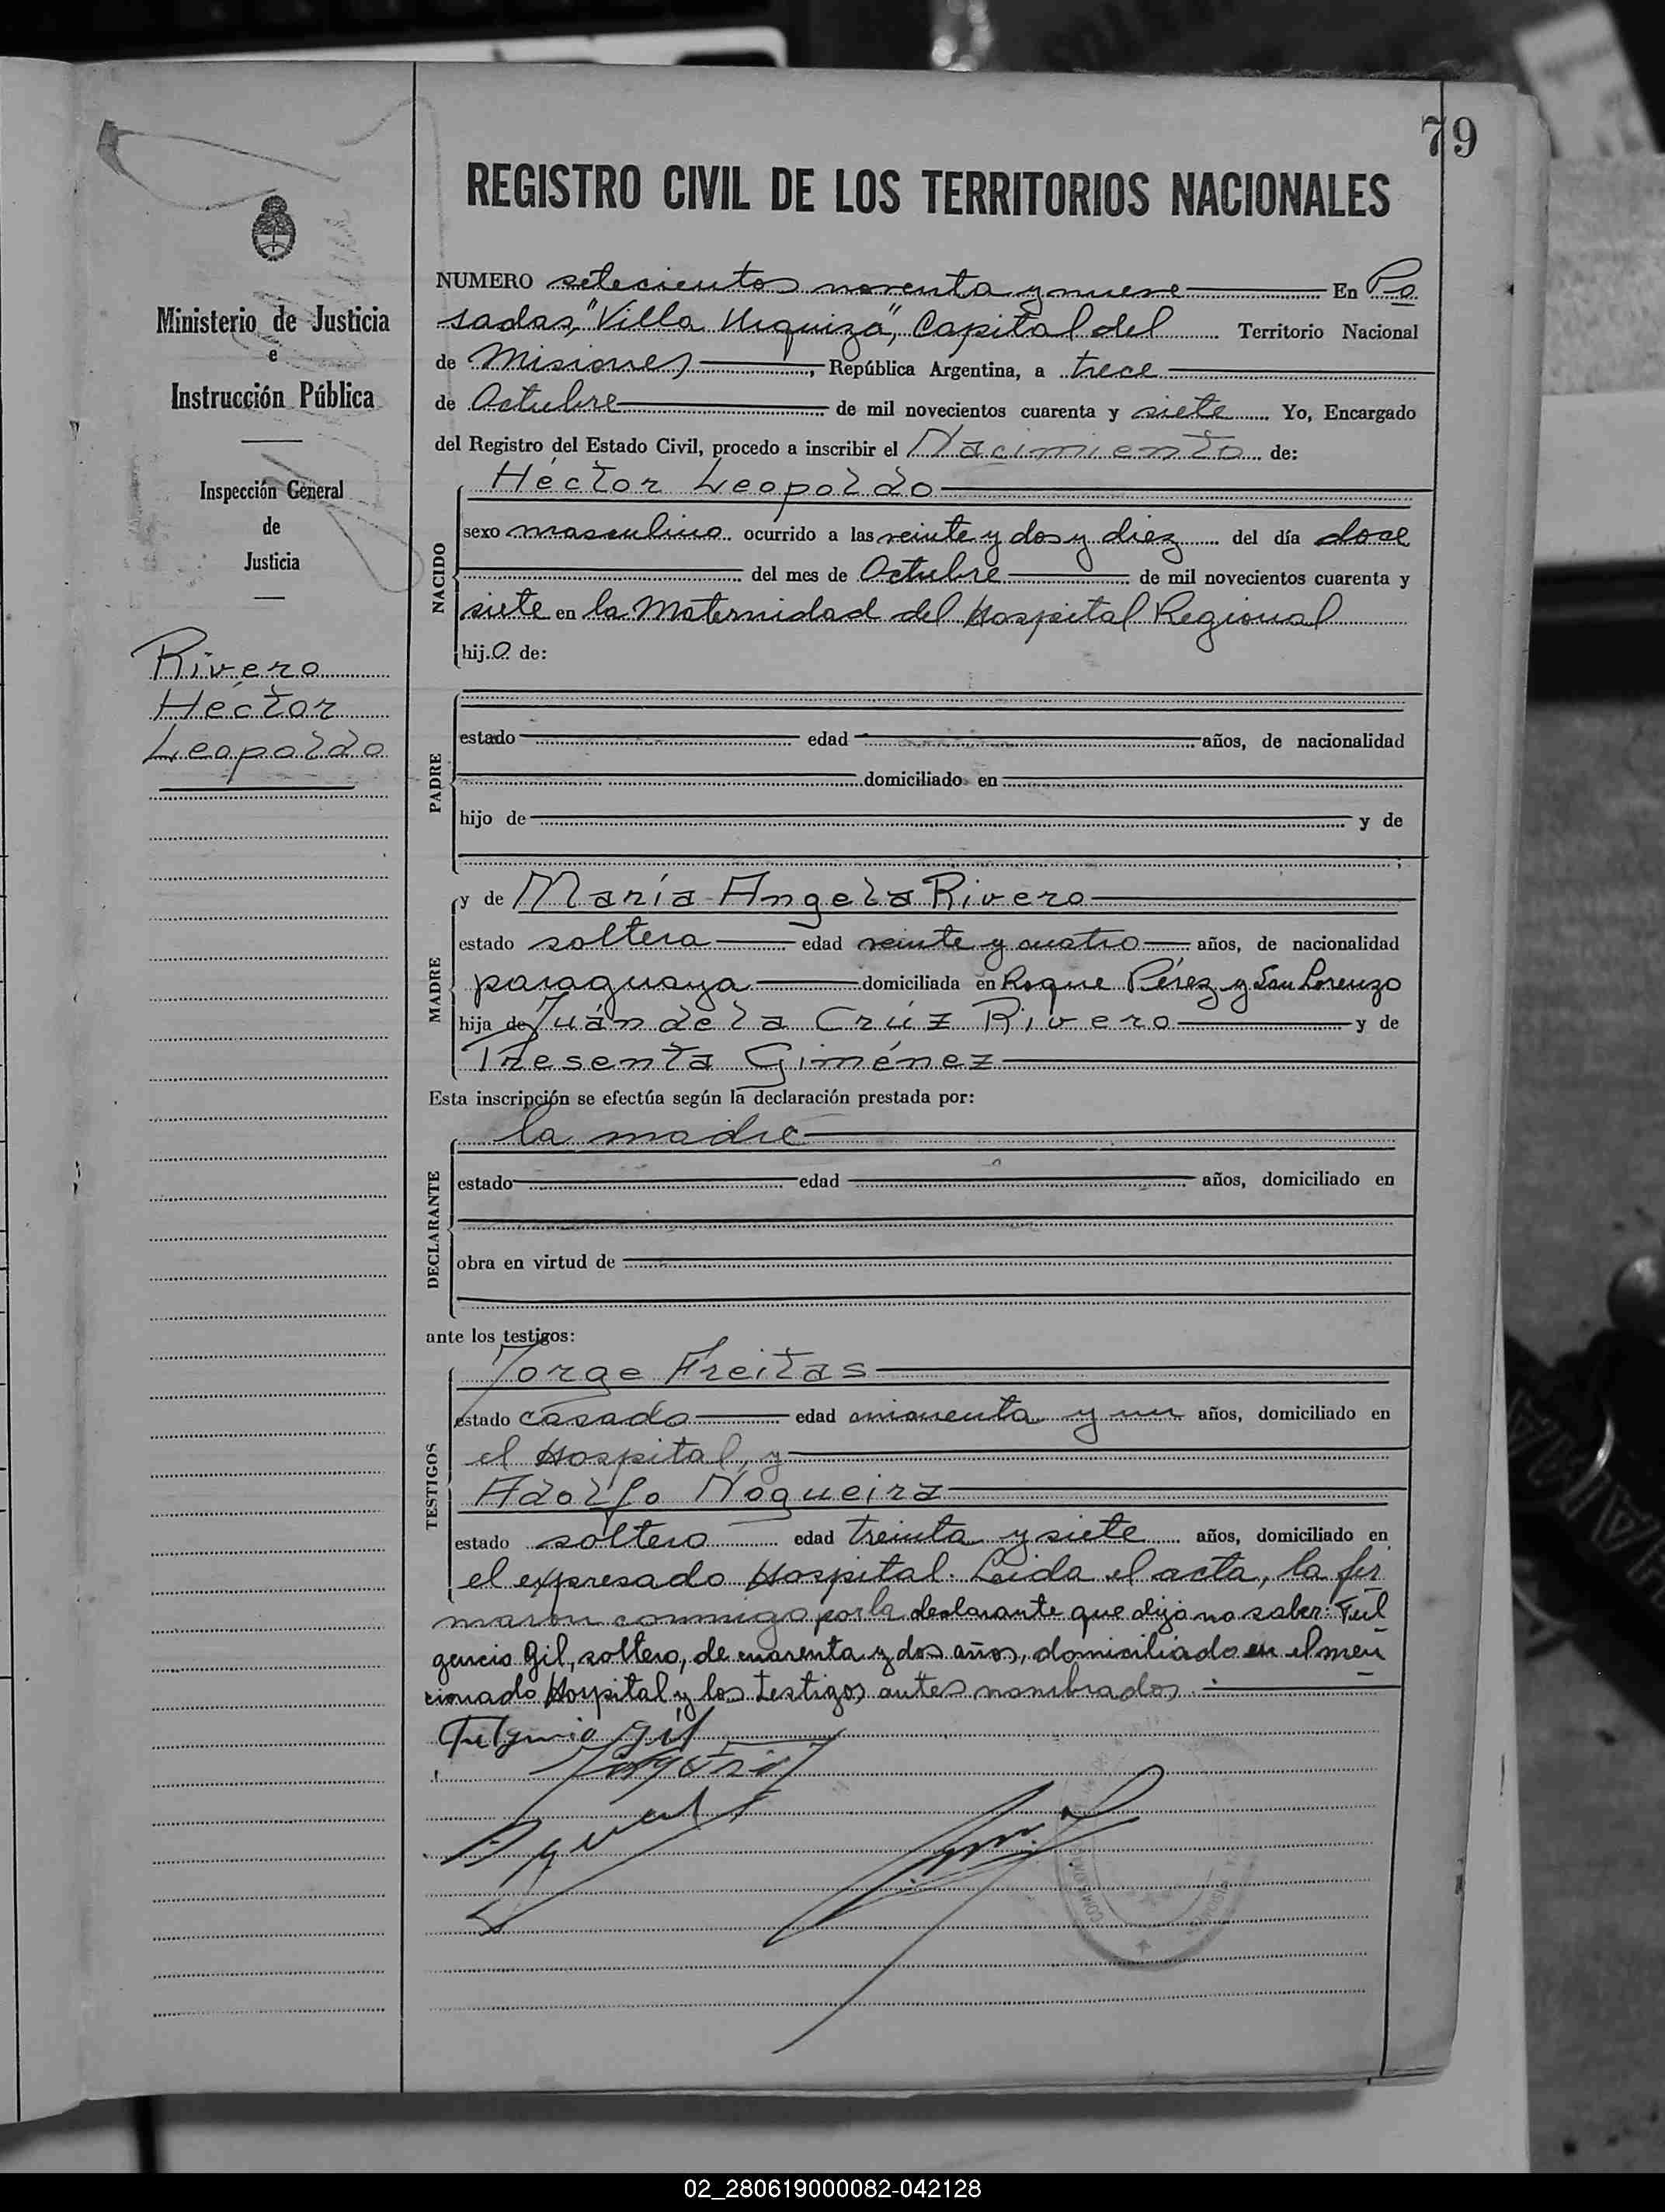 79
REGISTRO CIVIL DE LOS TERRITORIOS NACIONALES
Ministerio de Justicia
e
Instrucción Pública
Inspección General
de
Justicia
Rivero
Héctor
Leopoldo
NUMERO setecientos noventa y nueve En Po
sadas, "Villa Urquiza", Capital del Territorio Nacional
de Misiones, República Argentina, a trece
de Octubre de mil novecientos cuarenta y siete Yo, Encargado
del Registro del Estado Civil, procedo a inscribir el Nacimiento de:
Héctor Leopoldo
NACIDO
sexo masculino ocurrido a las veinte y dos y diez del día doce
del mes de Octubre de mil novecientos cuarenta y
siete en la Maternidad del Hospital Regional
hijo de:
PADRE
estado edad años, de nacionalidad
domiciliado en
hijo de y de
MADRE
y de María Angela Rivero
estado soltera edad veinte y cuatro años, de nacionalidad
paraguaya domiciliada en Roque Pérez y San Lorenzo
hija de Juán de la Crúz Rivero y de
Presenta Giménez
Esta inscripción se efectúa según la declaración prestada por:
la madre
DECLARANTE
estado edad años, domiciliado en
obra en virtud de
ante los testigos:
TESTIGOS
Jorge Freitas
estado casado edad cincuenta y un años, domiciliado en
el Hospital, y
Adolfo Nogueira
estado soltero edad treinta y siete años, domiciliado en
el expresado Hospital. Leida el acta, la fir
maron conmigo por la declarante que dijo no saber: Ful
gencio Gil, soltero, de cuarenta y dos años, domiciliado en el men
cionado Hospital y los testigos antes nombrados.
Fulgencio Gil
02_280619000082-042128